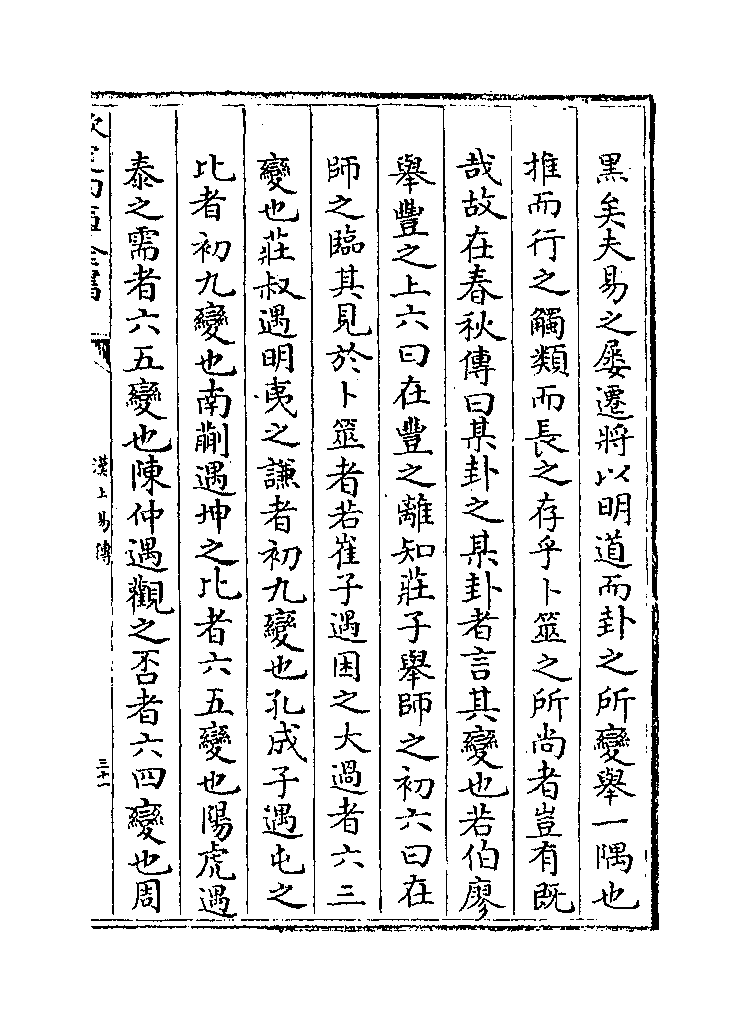 黑矣夫易之屡遷將以明道而卦之所變舉一隅也
推而行之觸類而長之存乎卜筮之所尚者豈有既
哉故在春秋傳曰某卦之某卦者言其變也若伯廖
舉豐之上六曰在豐之離知莊子舉師之初六曰在
師之臨其見於卜筮者若崔子遇困之大過者六三
變也莊叔遇明夷之謙者初九變也孔成子遇屯之
比者初九變也南蒯遇坤之比者六五變也陽虎遇
泰之需者六五變也陳仲遇觀之否者六四變也周
漢上易傳
三十一